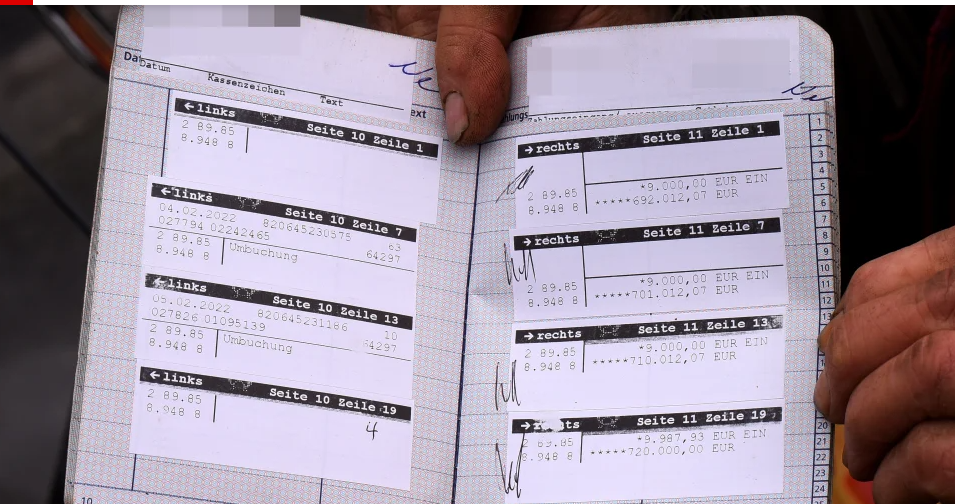 Datum
Datum Kassenzeichen Text
ext
← links Seite 10 Zeile 1
2 89.85
8.948 8
← links Seite 10 Zeile 7
04.02.2022 820645230575 63
027794 02242465 64297
2 89.85 Umbuchung
8.948 8
← links Seite 10 Zeile 13
05.02.2022 820645231186 10
027826 01095139 64297
2 89.85 Umbuchung
8.948 8
← links Seite 10 Zeile 19
2 89.85
8.948 8
4
10
hlungs
1
2
3
4
5
6
7
8
9
10
11
12
13
20
21
22
23
24
→ rechts Seite 11 Zeile 1
*9.000,00 EUR EIN
2 89.85 *****692.012,07 EUR
8.948 8
→ rechts Seite 11 Zeile 7
*9.000,00 EUR EIN
2 89.85 *****701.012,07 EUR
8.948 8
→ rechts Seite 11 Zeile 13
2 89.85 *9.000,00 EUR EIN
8.948 8 *****710.012,07 EUR
→ rechts Seite 11 Zeile 19
2 89.85 *9.987,93 EUR EIN
8.948 8 *****720.000,00 EUR